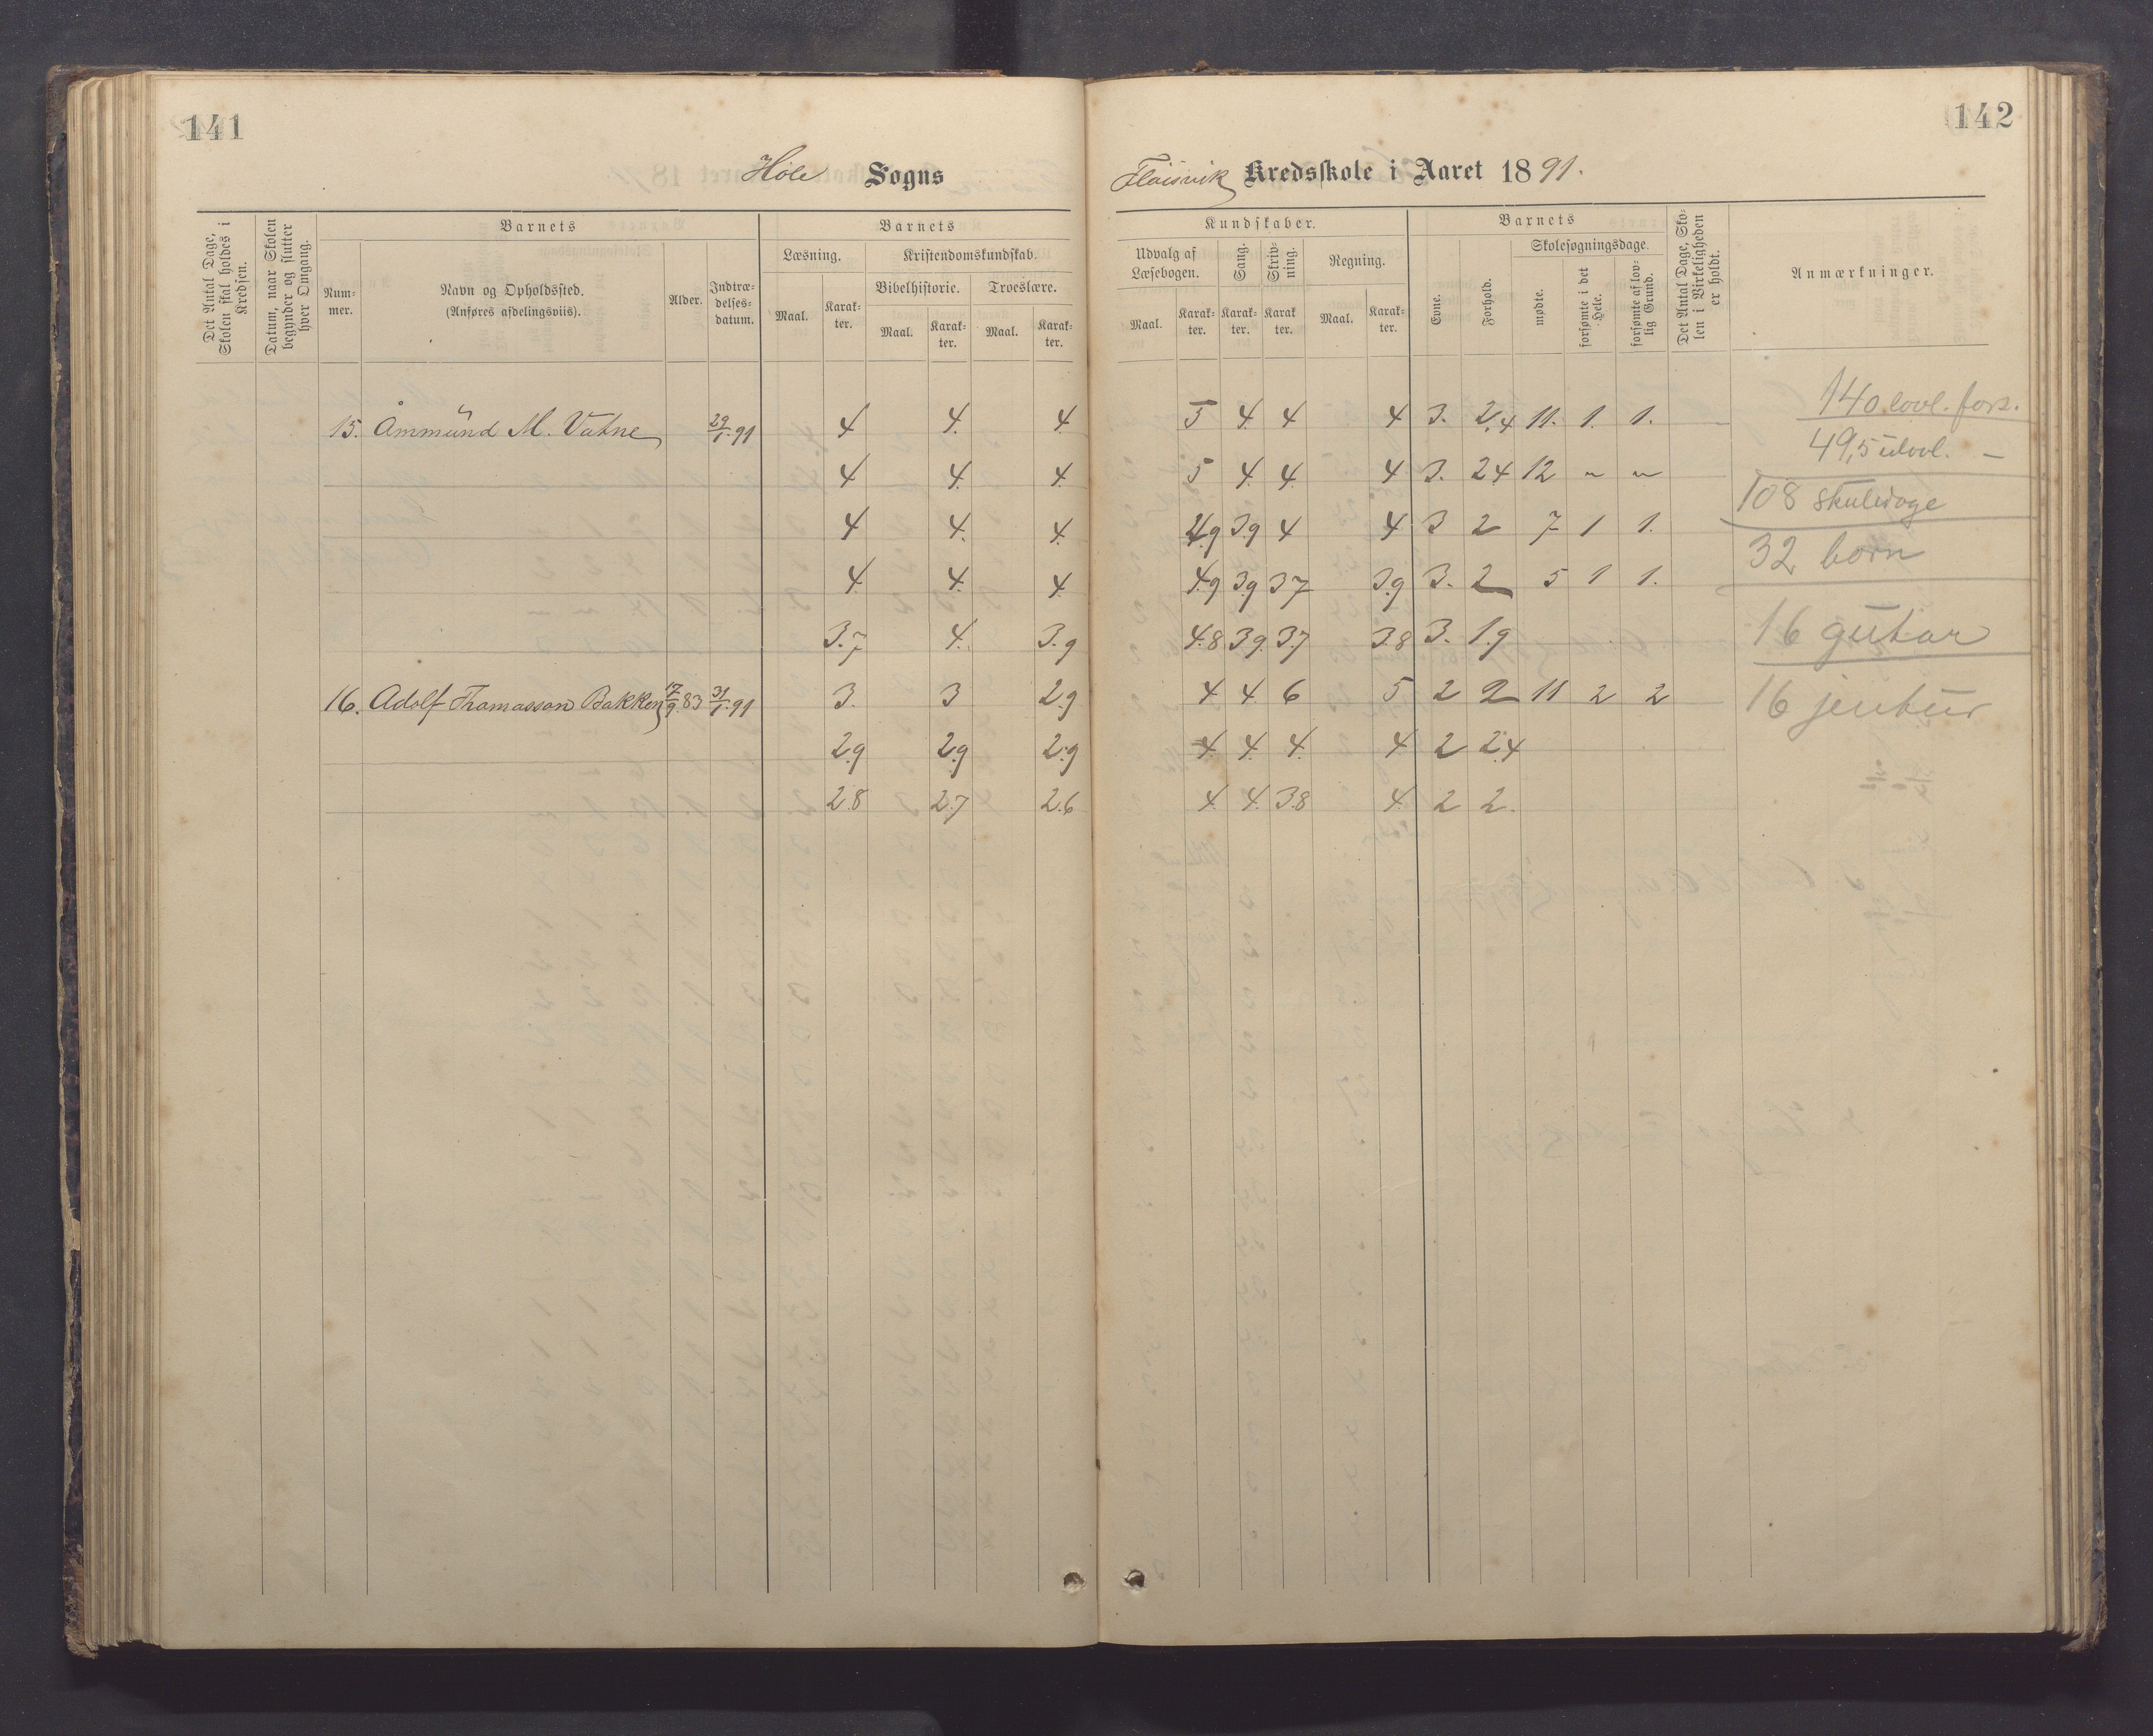 141
142
Höle Sogns
Kredsskole i Aaret 1891.
Det Antal Dage, Skolen skal holdes i Kredsen.
Datum, naar Skolen begynder og slutter hver Omgang.
Barnets
Num-
mer.
Navn og Opholdssted.
(Anføres afdelingsviis).
Alder.
Indtræ-
delses-
datum.
Barnets
Læsning.
Maal.
Karak-
ter.
Kristendomskundskab.
Bibelhistorie.
Maal.
Karak-
ter.
Troeslære.
Maal.
Karak-
ter.
Kundskaber.
Udvalg af
Læsebogen.
Maal.
Karak-
ter.
Sang.
Karak-
ter.
Skriv-
ning.
Karak
ter.
Regning.
Maal.
Karak-
ter.
Barnets
Evne.
Forhold.
Skolesøgningsdage.
mødte.
forsømte i det
Hele.
forsømte af lov-
lig Grund.
Det Antal Dage, Sko-
len i Virkeligheden
er holdt.
Anmærkninger.
15. Åmmund M. Vatne 29/1.91 4 4. 4. 5 4. 4 4 3. 2.4 11. 1. 1.
4 4. 4. 5 4. 4. 4 3. 2.4 12 " "
4 4. 4. 4.9 3.9 4 4 3 2 7 1 1.
4. 4. 4. 4.9 3.9 3.7 3.9 3. 2 5 1 1.
3.7 4. 3.9 4.8 3.9 3.7 3.8 3. 1.9
16. Adolf Thomasson Bakken 17/9.83 31/1.91 3. 3 2.9 4 4 6 5 2 2 11 2 2
2.9 2.9 2.9 4 4. 4. 4 2 2.4
2.8 2.7 2.6 4. 4. 3.8 4. 2 2.
140 lovl. fors.
49,5 ulovl. –
108 skuledage
32 born
16 gutar
16 jentur